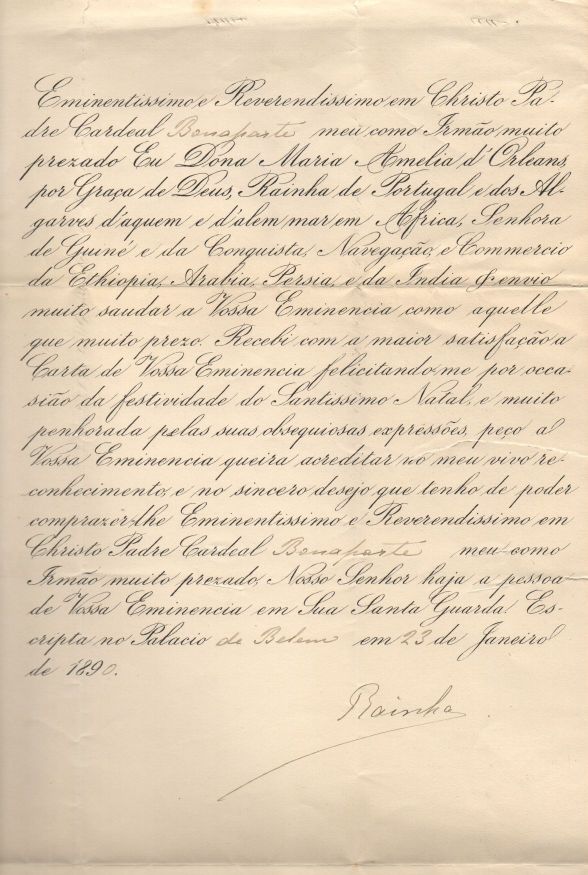 Eminentissimo e Reverendissimo em Christo Pa-
dre Cardeal Bonaparte meu como Irmão muito
prezado Eu Dona Maria Amelia d'Orleans,
por Graça de Deus, Rainha de Portugal e dos Al-
garves d'aquem e d'alem mar em Africa, Senhora
de Guiné e da Conquista, Navegação, e Commercio
da Ethiopia, Arabia, Persia, e da India &. envio
muito saudar a Vossa Eminencia como aquelle
que muito prezo. Recebi com a maior satisfação a
Carta de Vossa Eminencia felicitando me por occa-
sião da festividade do Santissimo Natal, e muito
penhorada pelas suas obsequiosas expressões, peço a
Vossa Eminencia queira acreditar no meu vivo re-
conhecimento, e no sincero desejo que tenho de poder
comprazer-lhe Eminentissimo e Reverendissimo em
Christo Padre Cardeal Bonaparte meu como
Irmão muito prezado, Nosso Senhor haja a pessoa
de Vossa Eminencia em Sua Santa Guarda. Es-
cripta no Palacio de Belem em 23 de Janeiro
de 1890.
Rainha